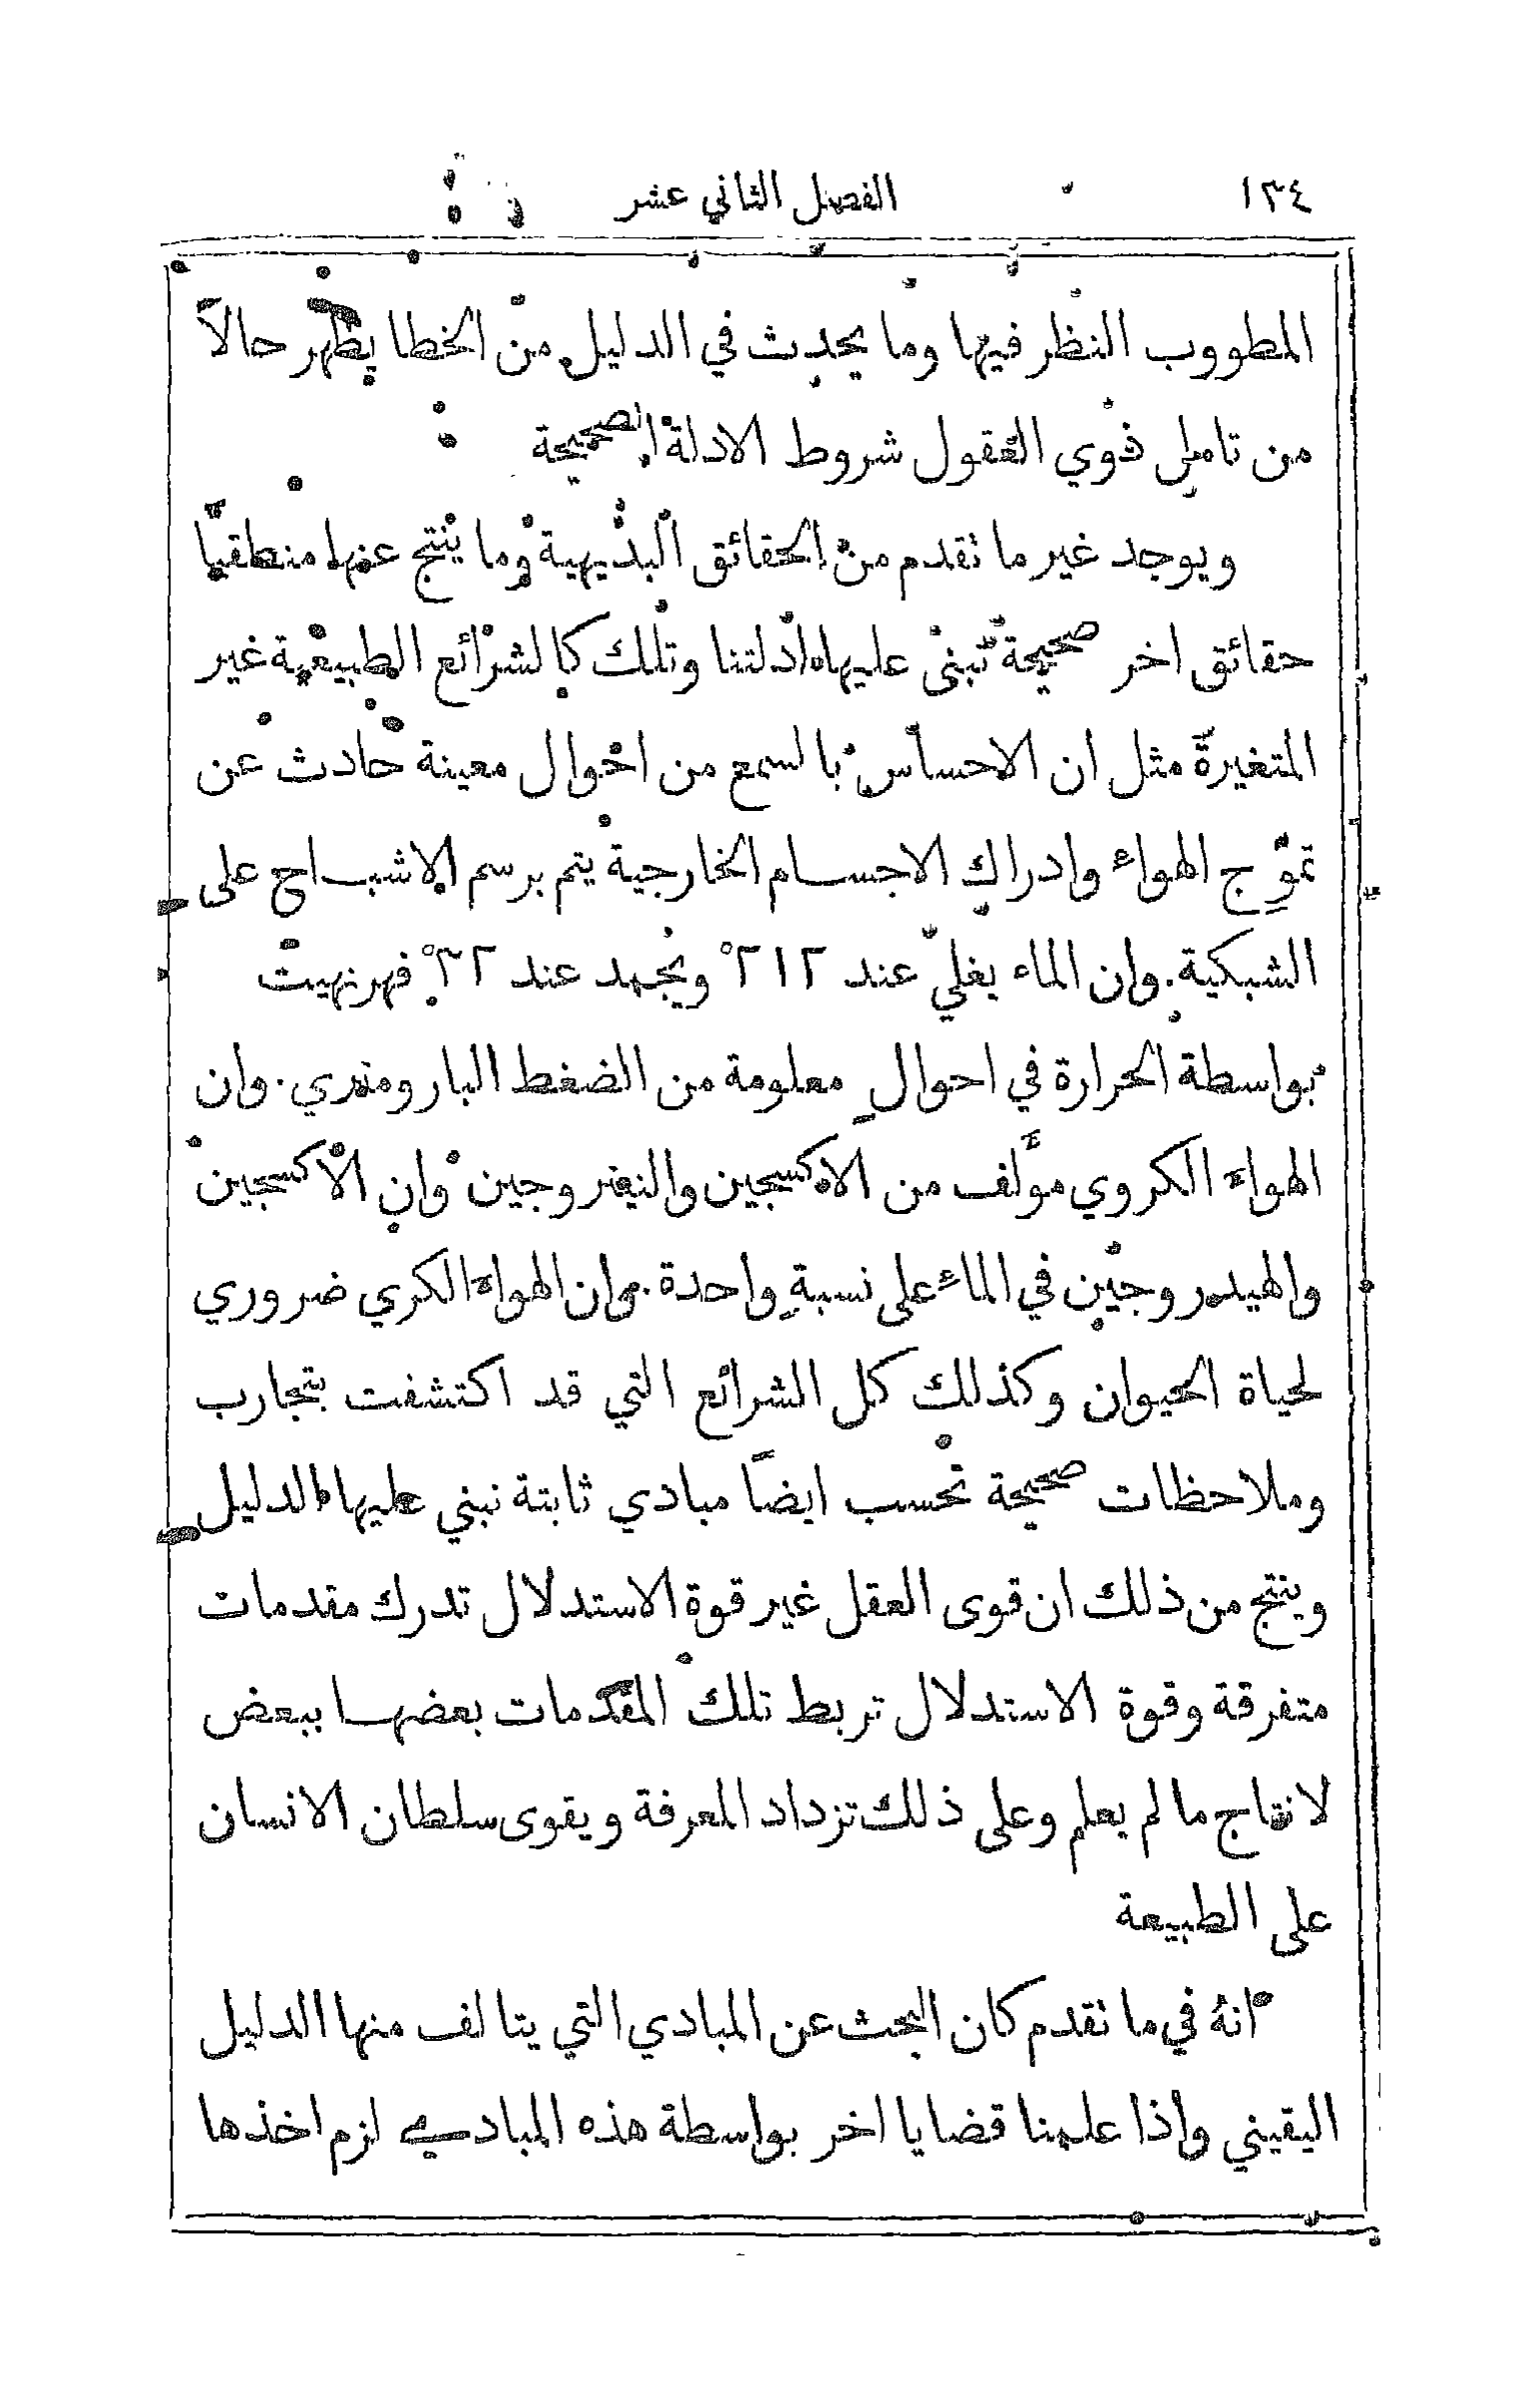 ١٣٤ الفصل الثاني عشر
المطووب النظر فيها وما يحدث في الدليل من الخطا يظهر حالاً
من تامل ذوي العقول شروط الادلة الصحيحة
ويوجد غير ما نقدم من الحقائق البديهية وما ينتج عنها منطقيّا
حقائق اخر صحيحة تبنى عليها ادلتنا وتلك كالشرائع الطبيعية غير
المتغيرة مثل ان الاحساس بالسمع من احوال معينة حادث عن
تموّج الهواء وادراك الاجسام الخارجية يتم برسم الاشباح على
الشبكية. وان الماء يغلي عند ٢١٢° ويجمد عند ٣٢° فهرنهيت
بواسطة الحرارة في احوالٍ معلومة من الضغط البارومتري. وان
الهواء الكروي مؤلف من الاكسجين والنيتروجين وان الاكسجين
والهيدروجين في الماء على نسبةٍ واحدة. وان الهواء الكري ضروري
لحياة الحيوان وكذلك كل الشرائع التي قد اكتشفت بتجارب
وملاحظات صحيحة تحسب ايضاً مبادي ثابتة نبني عليها الدليل
وينتج من ذلك ان قوى العقل غير قوة الاستدلال تدرك مقدمات
متفرقة وقوة الاستدلال تربط تلك المقدمات بعضها ببعض
لانتاج ما لم يعلم وعلى ذلك تزداد المعرفة ويقوى سلطان الانسان
على الطبيعة
انهُ في ما نقدم كان البحث عن المبادي التي يتالف منها الدليل
اليقيني واذا علمنا قضايا اخر بواسطة هذه المبادي لزم اخذها